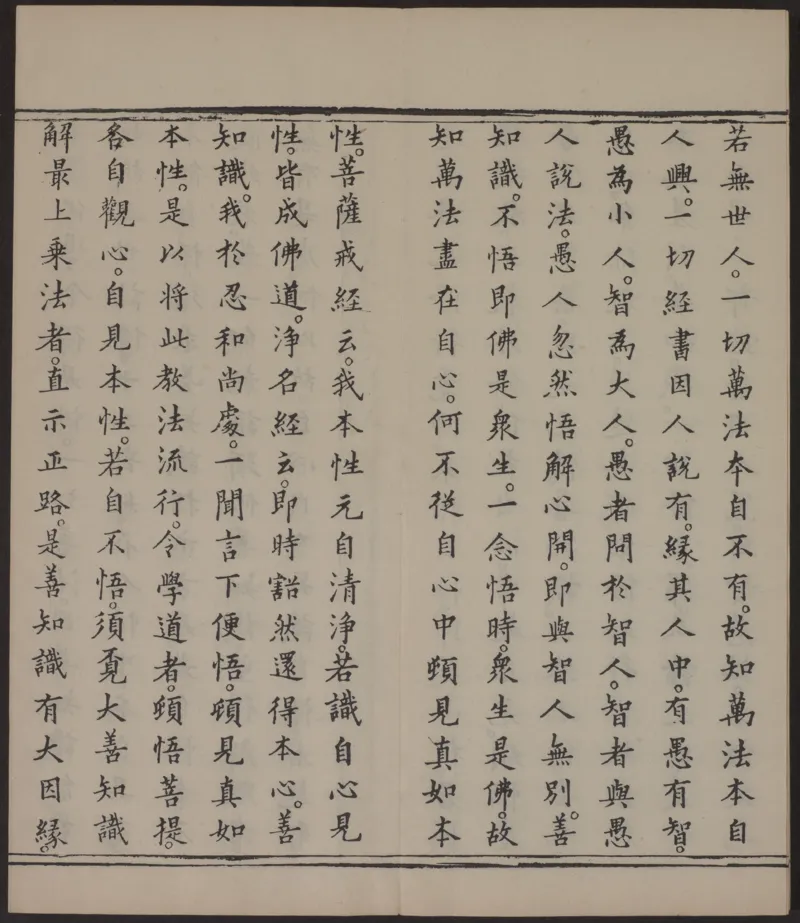 若無世人。一切萬法本自不有。故知萬法本自
人興。一切經書因人說有。緣其人中。有愚有智。
愚為小人。智為大人。愚者問於智人。智者與愚
人說法。愚人忽然悟解心開。即與智人無別。善
知識。不悟即佛是衆生。一念悟時。衆生是佛。故
知萬法盡在自心。何不從自心中頓見真如本
性。菩薩戒經云。我本性元自清淨。若識自心見
性。皆成佛道。淨名經云。即時豁然還得本心。善
知識。我於忍和尚處。一聞言下便悟。頓見真如
本性。是以將此教法流行。令學道者。頓悟菩提。
各自觀心。自見本性。若自不悟。須覓大善知識
解最上乗法者。直示正路。是善知識有大因緣。